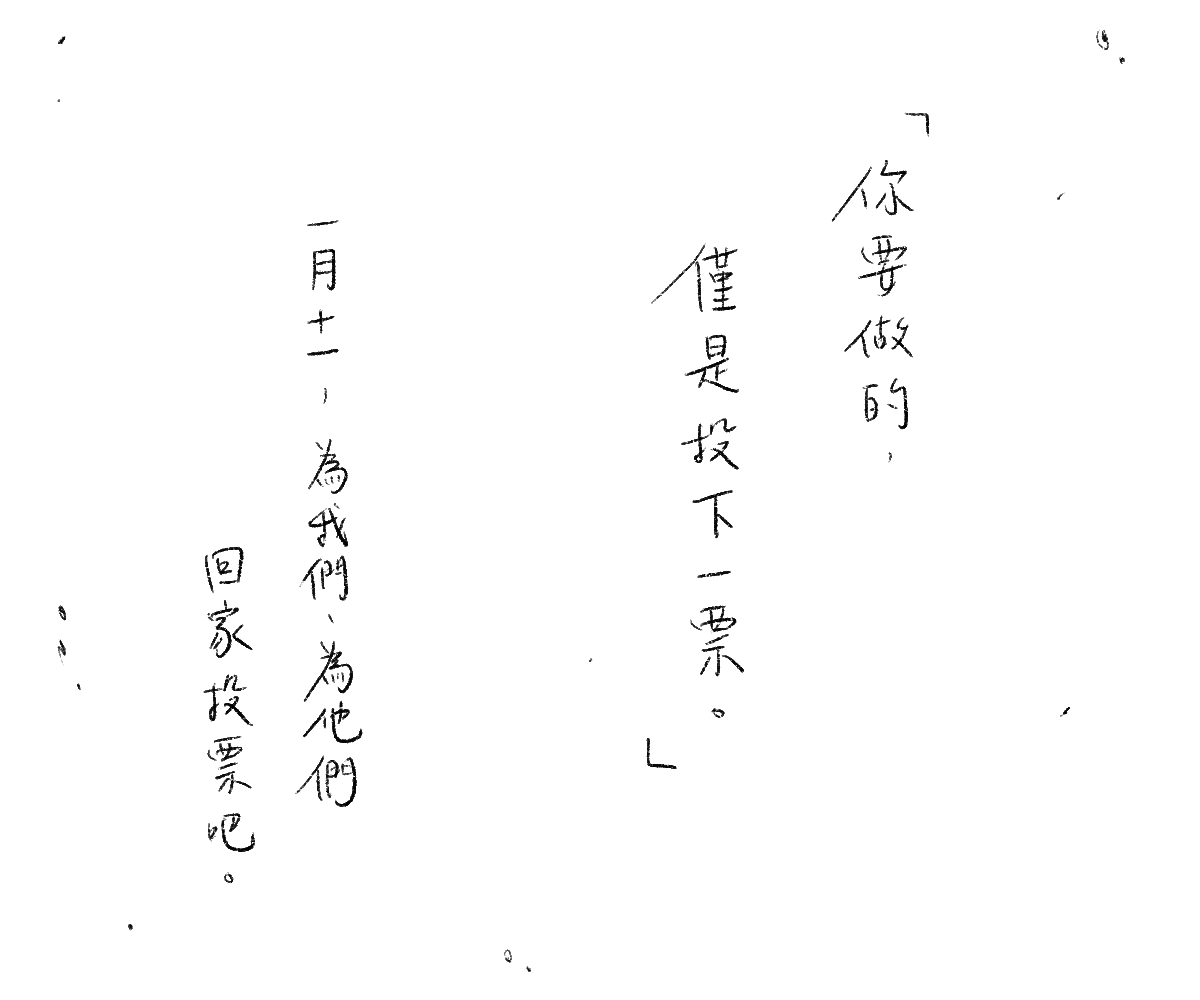 「你要做的，
僅是投下一票。」
一月十一，為我們、為他們
回家投票吧。